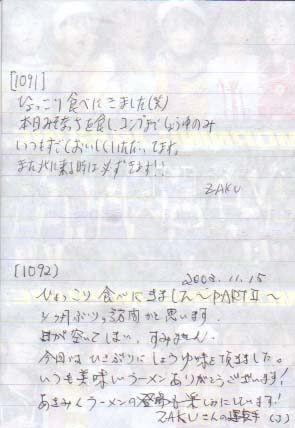 [1091]
ひょっこり食べにきました(笑)
本日みそ
いつもすごくおいしくいただいてます。
また北に来る時は必ずきます!!
ZAKU
[1092]
2003.11.15
ひょっこり食べにきました〜PART II〜
4ヶ月ぶりの訪問かと思います。
が空いてしまい、すみません。
今回はひさぶりにしょうゆ味を頂きました。
いつも美味いラーメンありがとうございます!
ラーメンの登場も楽しみにしています!
ZAKUさんの運転手 (J)